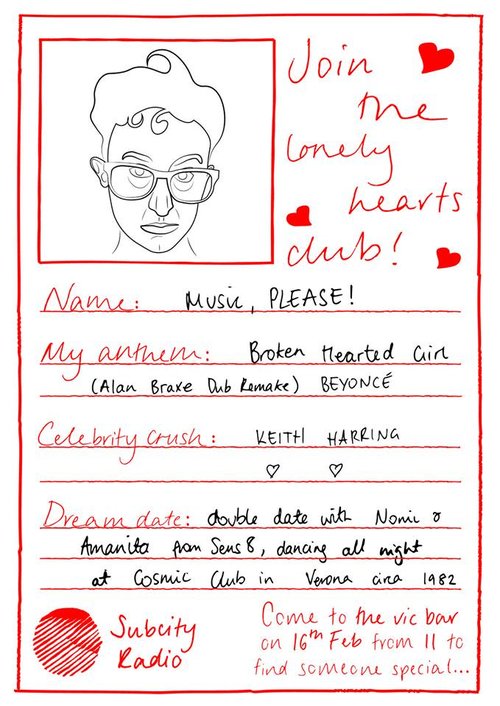 Join
the
lonely
hearts
club!
Name: Music, PLEASE!
My anthem: Broken Hearted Girl
(Alan Braxe Dub Remake) BEYONCÉ
Celebrity Crush: KEITH HARRING
♡ ♡
Dream date: double date with Nomi &
Amanita from Sens8, dancing all night
at Cosmic Club in Verona circa 1982
Subcity
Radio
Come to the vic bar
on 16th Feb from 11 to
find someone special...